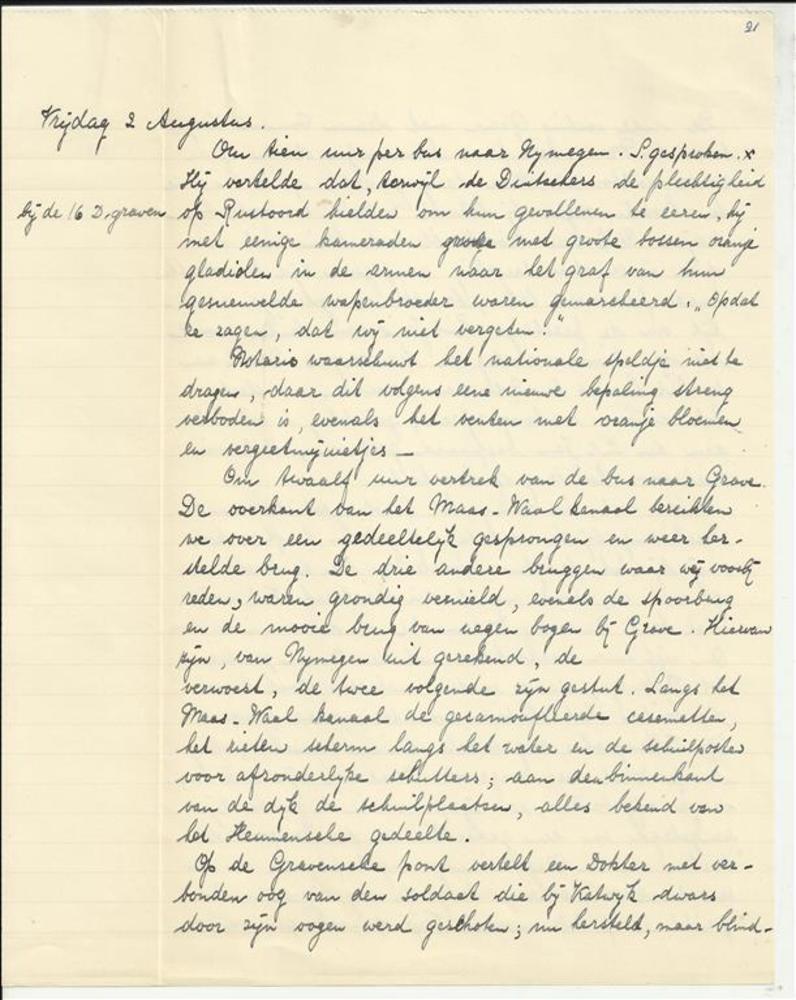 21
Vrijdag 2 Augustus.
Om tien uur per bus naar Nymegen. S. gesproken. x
Hij vertelde dat, terwyl de Duitschers de plechtigheid
bij de 16 D. graven op Rustoord hielden om hun gevallenen te eeren, hij
met eenige kameraden met groote bossen oranje
gladiolen in de armen naar het graf van hun
gesneuvelde wapenbroeder waren gemarcheerd. "Opdat
ze zagen, dat wij niet vergeten."
Notaris waarschuwt het nationale speldje niet te
dragen, daar dit volgens eene nieuwe bepaling streng
verboden is, evenals het venten met oranje bloemen
en vergeetmijnietjes —
Om twaalf uur vertrek van de bus naar Grave.
De overkant van het Maas-Waal kanaal bereikten
we over een gedeeltelyk gesprongen en weer her-
stelde brug. De drie andere bruggen waar wij voorbij
reden, waren grondig vernield, evenals de spoorbrug
en de mooie brug van negen bogen bij Grave. Hiervan
zijn, van Nymegen uit gerekend, de
verwoest, de twee volgende zijn gestut. Langs het
Maas-Waal kanaal de gecamoufleerde casematten,
het rieten scherm langs het water en de schuilposten
voor afzonderlyke schutters; aan den binnenkant
van de dyk de schuilplaatsen, alles bekend van
het Heumensche gedeelte.
Op de Gravensche pont vertelt een Dokter met ver-
bonden oog van den soldaat die bij Katwyk dwars
door zijn oogen werd geschoten; nu hersteld, maar blind-